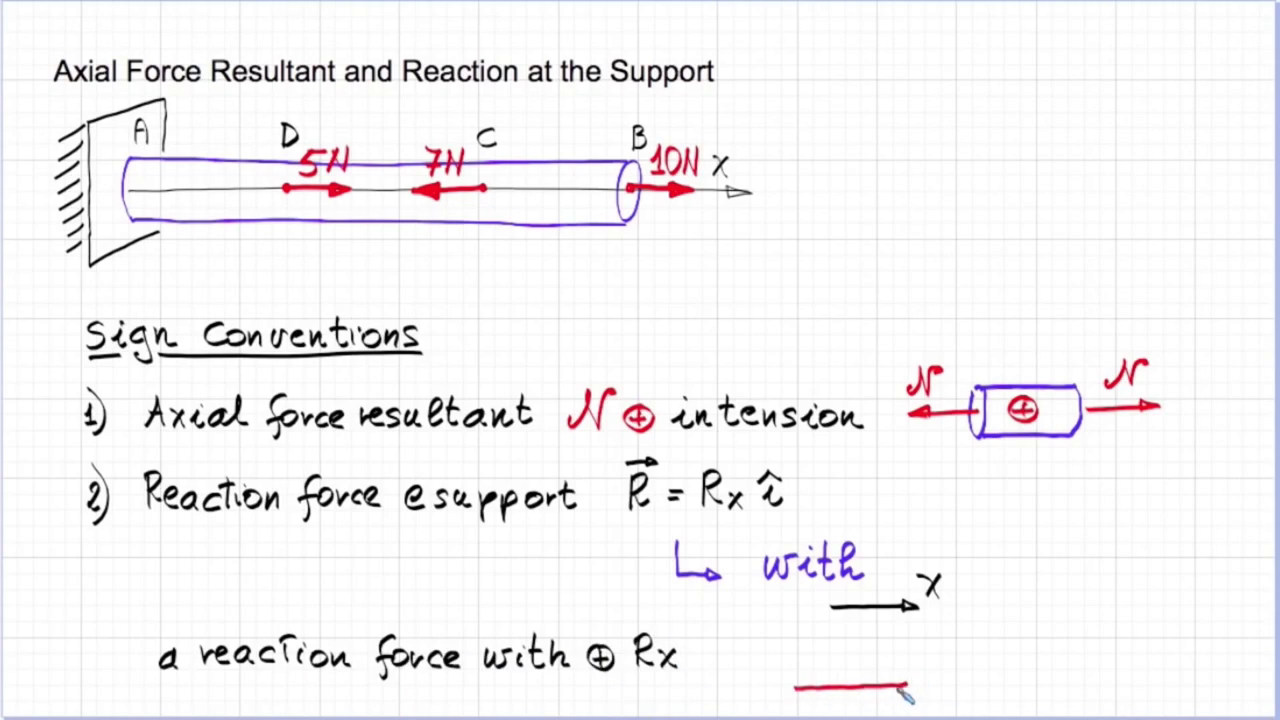 Axial Force Resultant and Reaction at the Support
A D C B
5N 7N 10N x
Sign Conventions
1) Axial force resultant N ⊕ in tension N ⊕ N
2) Reaction force @ support R⃗ = Rx î
↳ with
x
a reaction force with ⊕ Rx